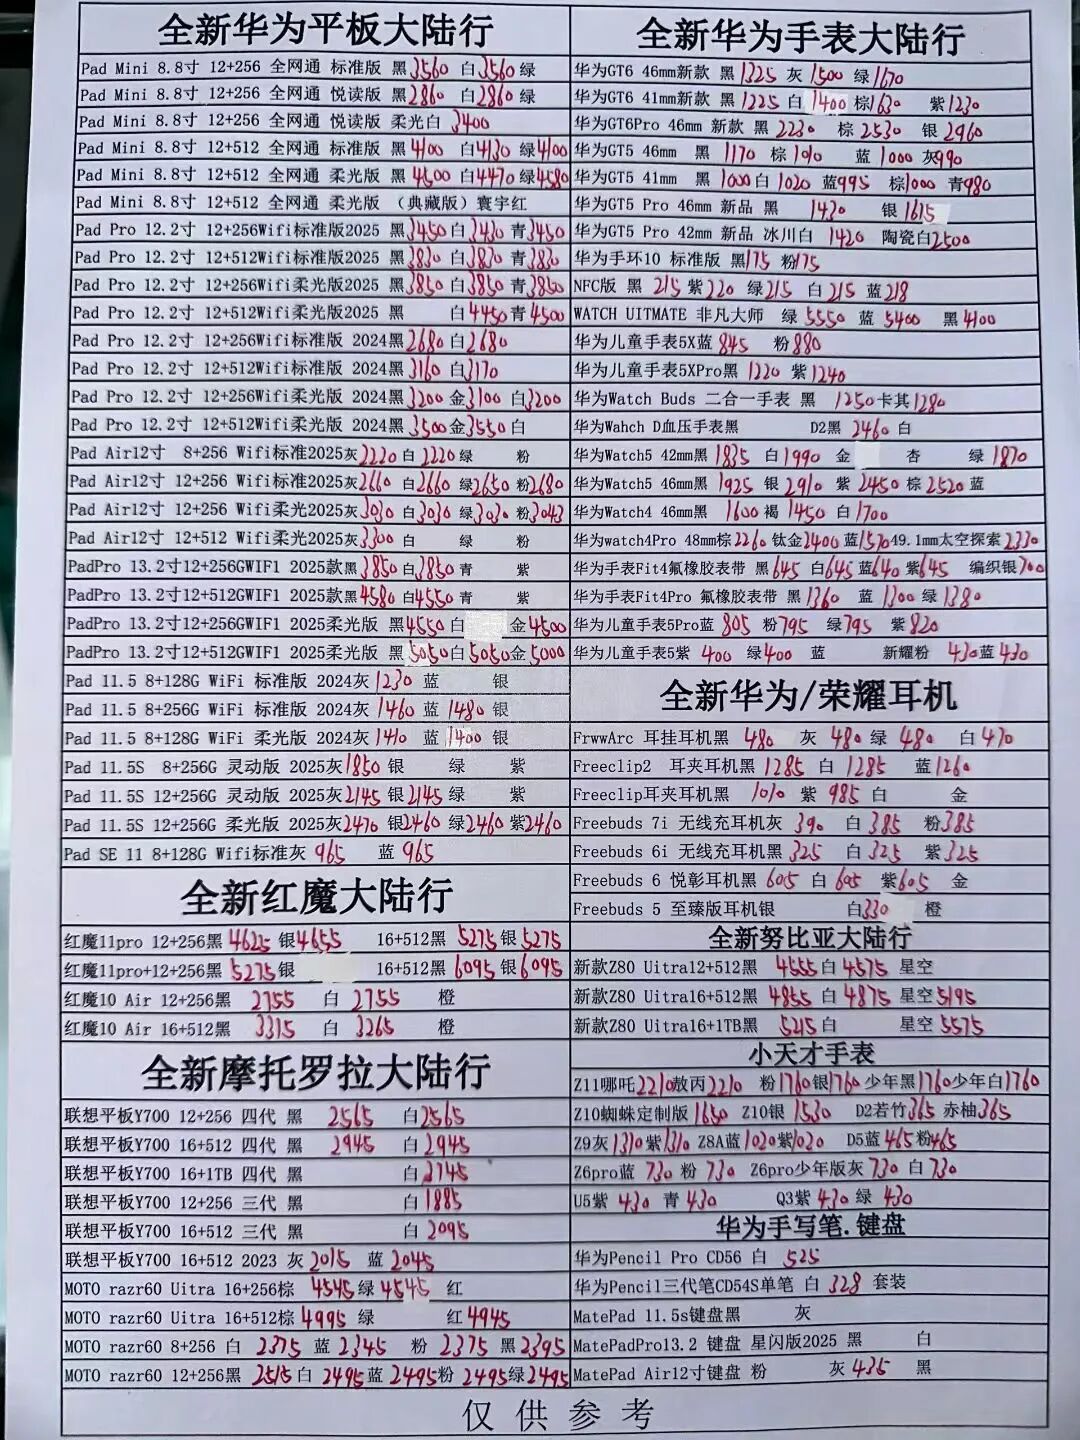 全新华为平板大陆行
Pad Mini 8.8寸 12+256 全网通 标准版 黑3560 白3560 绿
Pad Mini 8.8寸 12+256 全网通 悦读版 黑2860 白2860 绿
Pad Mini 8.8寸 12+256 全网通 悦读版 柔光白 3400
Pad Mini 8.8寸 12+512 全网通 标准版 黑4100 白4130 绿4100
Pad Mini 8.8寸 12+512 全网通 柔光版 黑4500 白4470 绿4580
Pad Mini 8.8寸 12+512 全网通 柔光版 （典藏版）寰宇红
Pad Pro 12.2寸 12+256Wifi标准版2025 黑3450 白3430 青3450
Pad Pro 12.2寸 12+512Wifi标准版2025 黑3830 白3830 青3830
Pad Pro 12.2寸 12+256Wifi柔光版2025 黑3850 白3850 青3850
Pad Pro 12.2寸 12+512Wifi柔光版2025 黑 白4450 青4500
Pad Pro 12.2寸 12+256Wifi标准版 2024黑2680 白2680
Pad Pro 12.2寸 12+512Wifi标准版 2024黑3160 白3170
Pad Pro 12.2寸 12+256Wifi柔光版 2024黑3200 金3100 白3200
Pad Pro 12.2寸 12+512Wifi柔光版 2024黑3500 金3550 白
Pad Air12寸 8+256 Wifi标准2025灰2220 白2220 绿 粉
Pad Air12寸 12+256 Wifi标准2025灰2660 白2660 绿2650 粉2680
Pad Air12寸 12+256 Wifi柔光2025灰3030 白3030 绿3030 粉3043
Pad Air12寸 12+512 Wifi柔光2025灰3300 白 绿 粉
PadPro 13.2寸12+256GWIF1 2025款黑3850 白3850 青 紫
PadPro 13.2寸12+512GWIF1 2025款黑4580 白4550 青 紫
PadPro 13.2寸12+256GWIF1 2025柔光版 黑4550 白 金4500
PadPro 13.2寸12+512GWIF1 2025柔光版 黑5050 白5050 金5000
Pad 11.5 8+128G WiFi 标准版 2024灰 1230 蓝 银
Pad 11.5 8+256G WiFi 标准版 2024灰 1460 蓝 1480 银
Pad 11.5 8+128G WiFi 柔光版 2024灰 1410 蓝 1400 银
Pad 11.5S 8+256G 灵动版 2025灰1850 银 绿 紫
Pad 11.5S 12+256G 灵动版 2025灰2145 银2145 绿 紫
Pad 11.5S 12+256G 柔光版 2025灰2470 银2460 绿2460 紫2460
Pad SE 11 8+128G Wifi标准灰 965 蓝 965
全新红魔大陆行
红魔11pro 12+256黑 4625 银4655 16+512黑 5275 银 5275
红魔11pro+12+256黑 5275 银 16+512黑 6095 银 6095
红魔10 Air 12+256黑 2755 白 2755 橙
红魔10 Air 16+512黑 3315 白 3265 橙
全新摩托罗拉大陆行
联想平板Y700 12+256 四代 黑 2565 白2565
联想平板Y700 16+512 四代 黑 2945 白2945
联想平板Y700 16+1TB 四代 黑 白3745
联想平板Y700 12+256 三代 黑 白1885
联想平板Y700 16+512 三代 黑 白2095
联想平板Y700 16+512 2023 灰 2015 蓝 2045
MOTO razr60 Uitra 16+256棕 4545 绿 4545 红
MOTO razr60 Uitra 16+512棕 4995 绿 红4945
MOTO razr60 8+256 白 2375 蓝 2345 粉 2375 黑2395
MOTO razr60 12+256黑 2515 白 2495 蓝 2495 粉 2495 绿2495
全新华为手表大陆行
华为GT6 46mm新款 黑 1325 灰 1500 绿 1670
华为GT6 41mm新款 黑 1225 白 1400 棕1630 紫1230
华为GT6Pro 46mm 新款 黑 2230 棕 2530 银 2960
华为GT5 46mm 黑 1170 棕 1010 蓝 1000 灰990
华为GT5 41mm 黑 1000 白 1020 蓝995 棕1000 青980
华为GT5 Pro 46mm 新品 黑 1430 银 1615
华为GT5 Pro 42mm 新品 冰川白 1420 陶瓷白2500
华为手环10 标准版 黑175 粉175
NFC版 黑 215 紫220 绿215 白 215 蓝218
WATCH UITMATE 非凡大师 绿 5550 蓝 5400 黑4100
华为儿童手表5X蓝 845 粉 880
华为儿童手表5XPro黑 1220 紫 1240
华为Watch Buds 二合一手表 黑 1250 卡其1280
华为Wahch D血压手表黑 D2黑 2460 白
华为Watch5 42mm黑 1835 白1990 金 杏 绿 1870
华为Watch5 46mm黑 1925 银 2910 紫 2450 棕 2520 蓝
华为Watch4 46mm黑 1600 褐 1450 白1700
华为watch4Pro 48mm棕2260 钛金2400 蓝1570 49.1mm太空探索2330
华为手表Fit4氟橡胶表带 黑645 白645 蓝640 紫645 编织银700
华为手表Fit4Pro 氟橡胶表带 黑 1360 蓝 1300 绿 1380
华为儿童手表5Pro蓝 805 粉795 绿795 紫 820
华为儿童手表5紫 400 绿400 蓝 新耀粉 430 蓝 430
全新华为/荣耀耳机
FrwwArc 耳挂耳机黑 480 灰 480 绿 480 白 470
Freeclip2 耳夹耳机黑 1285 白 1285 蓝1260
Freeclip耳夹耳机黑 1010 紫 985 白 金
Freebuds 7i 无线充耳机灰 390 白 385 粉385
Freebuds 6i 无线充耳机黑 325 白 325 紫325
Freebuds 6 悦彰耳机黑 605 白 605 紫605 金
Freebuds 5 至臻版耳机银 白330 橙
全新努比亚大陆行
新款Z80 Uitra12+512黑 4555 白 4575 星空
新款Z80 Uitra16+512黑 4855 白 4875 星空5195
新款Z80 Uitra16+1TB黑 5215 白 星空 5575
小天才手表
Z11哪吒2210 敖丙2210 粉1760 银1760 少年黑1760 少年白1760
Z10蜘蛛定制版 1650 Z10银 1530 D2若竹365 赤柚365
Z9灰1310 紫1310 Z8A蓝1020 紫1020 D5蓝 465 粉465
Z6pro蓝 730 粉 730 Z6pro少年版灰 730 白 730
U5紫 430 青 430 Q3紫 430 绿 430
华为手写笔.键盘
华为Pencil Pro CD56 白 525
华为Pencil三代笔CD54S单笔 白 328 套装
MatePad 11.5s键盘黑 灰
MatePadPro13.2 键盘 星闪版2025 黑 白
MatePad Air12寸键盘 粉 灰 435 黑
仅供参考